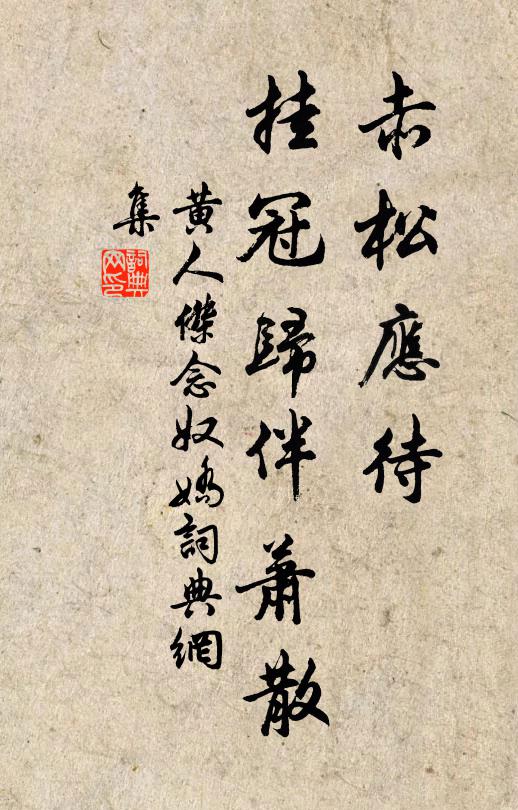 赤松應待
挂冠歸伴蕭散
黄人傑念奴嬌詞典網
集
詞典
网印